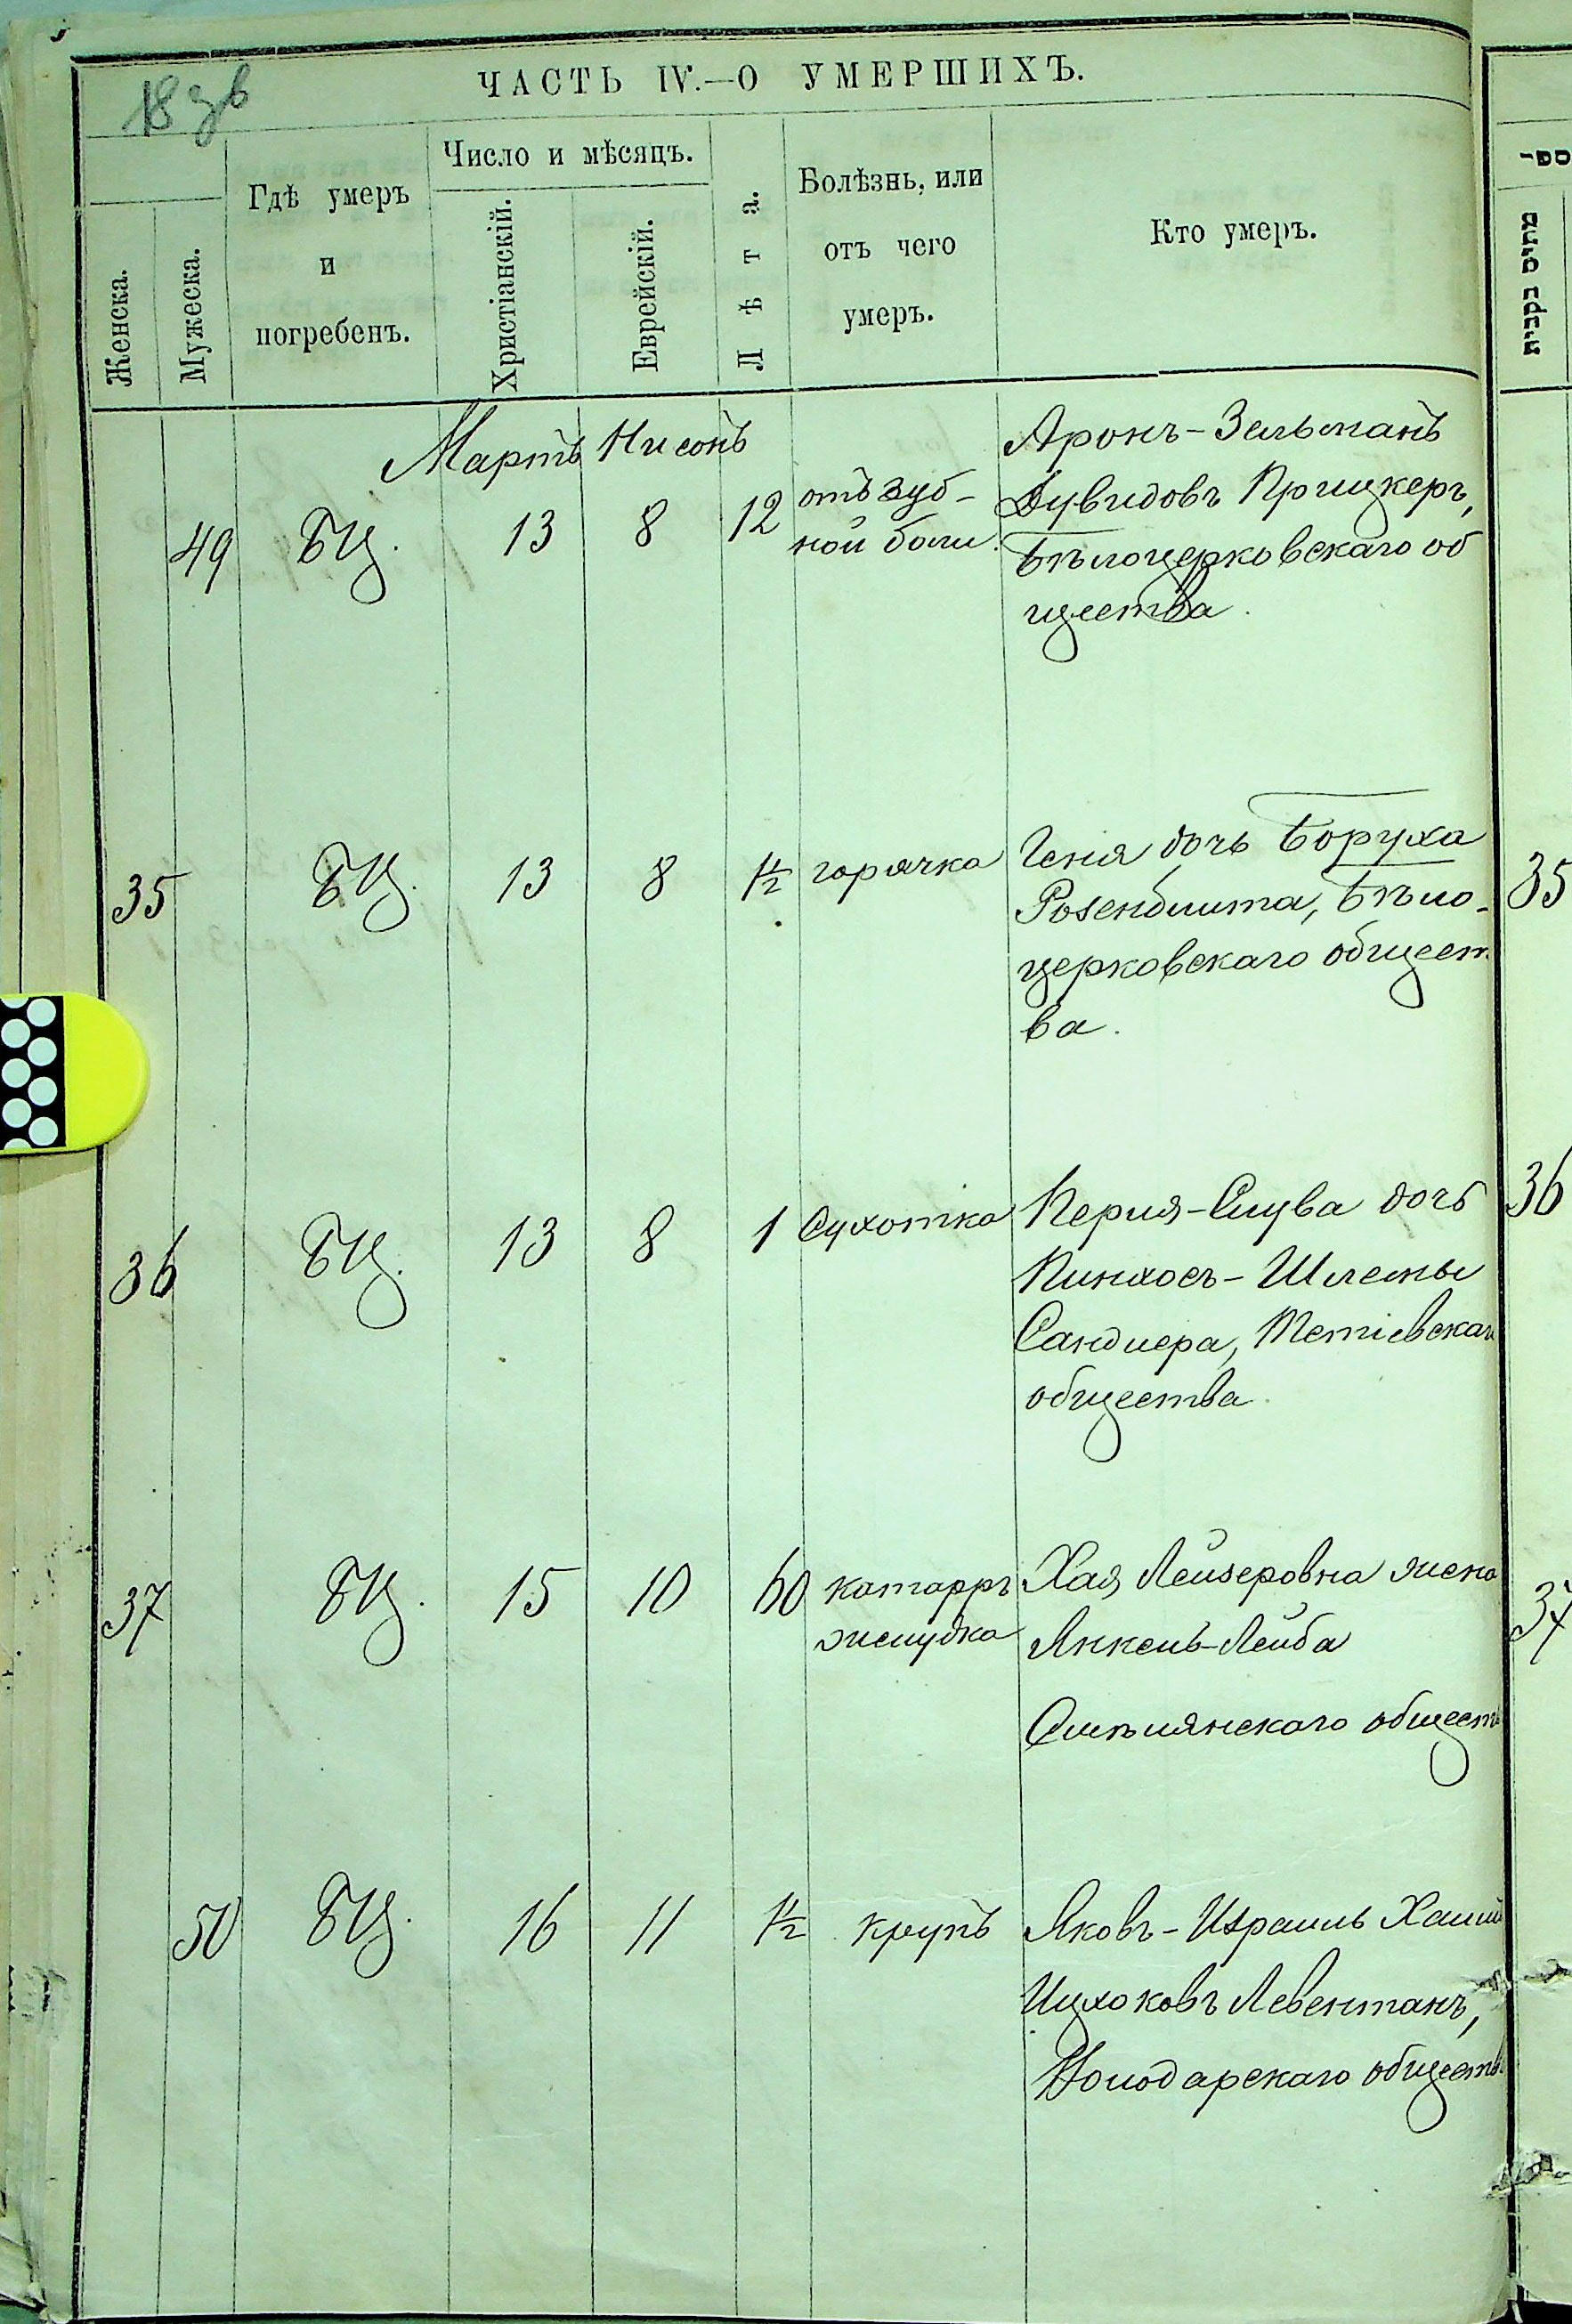 18 зв
ЧАСТЬ IV.—О УМЕРШИХЪ.
Женска.
Мужеска.
Гдѣ умеръ
и
погребенъ.
Число и мѣсяцъ.
Христіанскій.
Еврейскій.
Лѣта.
Болѣзнь, или
отъ чего
умеръ.
Кто умеръ.
Мартъ Нисонъ
49 БЦ. 13 8 12
отъ зуб-
ной боли.
Аронъ-Зельманъ
Дувидовъ Прицкеръ,
Бѣлоцерковскаго об
щества.
35 БЦ. 13 8 1½ горячка
Геня дочь Боруха
Розенблита, Бѣло-
церковскаго общест
ва.
35
36 БЦ. 13 8 1 Сухотка
Перля-Слува дочь
Пинхосъ-Шлемы
Сандлера, Тетіевскаго
общества.
36
37 БЦ. 15 10 60
катарръ
желудка
Хая Лейзеровна жена
Янкель-Лейба
Смѣлянскаго общест
37
50 БЦ. 16 11 1½ крупъ
Яковъ-Израиль Хаим
Ицхоковъ Левентанъ,
Володарскаго обществ